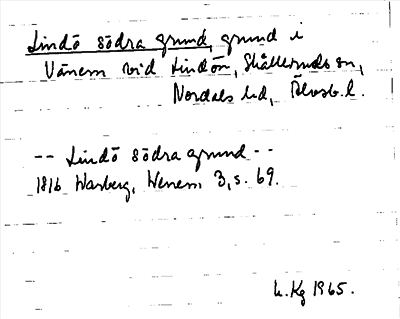 Lindö södra grund, grund i
Vänern vid Lindön, Skålleruds sn,
Nordals hd, Älvsb. l.
-- Lindö södra grund --
1816 Warberg, Wenern 3, s. 69.
L. Kg 1965.